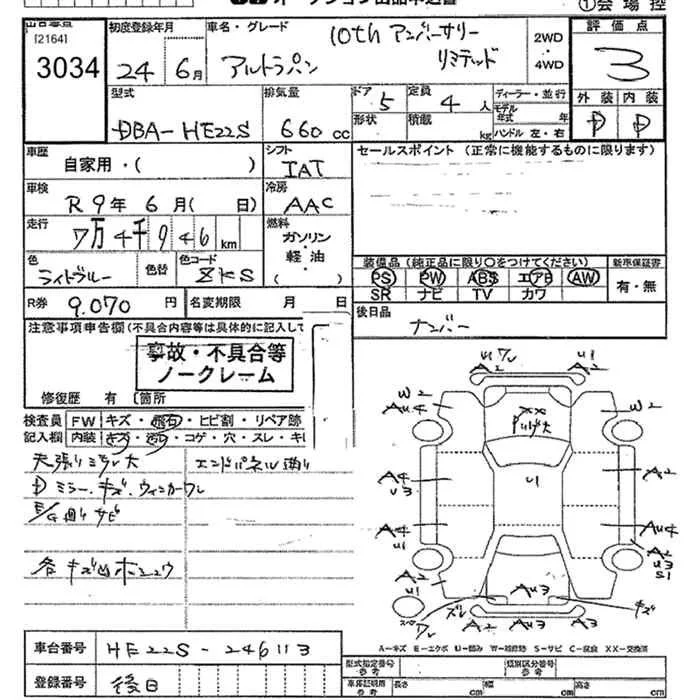 ①会場控
[2164]
3034
初度登録年月
24年6月
車名・グレード
アルトラパン
10th アンバーサリー
リミテッド
2WD
・
4WD
評価点
3
外装 内装
D D
型式
DBA-HE22S
排気量
660cc
ドア 5
形状
定員 4人
積載 kg
ディーラー・並行
モデル年式 年
ハンドル 左・右
車歴
自家用・( )
シフト
IAT
セールスポイント (正常に機能するものに限ります)
車検
R9年6月( 日)
冷房
AAC
走行
7万4千946km
燃料
ガソリン
・
軽油
( )
色
ライトブルー
色替
色コード
ZKS
装備品 (純正品に限り○をつけてください)
PS PW ABS エアB AW
SR ナビ TV カワ
新車保証書
有・無
R券 9.070円
名変期限 月 日
後日品
ナンバー
注意事項申告欄(不具合内容等は具体的に記入して
事故・不具合等
ノークレーム
修復歴 有〔 箇所
検査員
記入欄
FW キズ・飛石・ヒビ割・リペア跡
内装 キズ・汚れ・コゲ・穴・スレ・キレ
天張りミラレ大
エンドパネル凹り
D ミラー、キズ、ウィンカーワレ
E/G 廻りサビ
各キズ凹ホシュウ
U1 ワレ
A2
U1
A2
W2
AU4
XX
W2
A4
U3
U1
A2
A4
U1
AU4
A2
A2
U3
S1
AU3
ズレ
キズ
スペ
ワレ
A2
AU3
A2
A-キズ E-エクボ U-凹み W-補修跡 S-サビ C-腐食 XX-交換済
車台番号
HE22S-246113
登録番号
後日
型式指定番号
参考
類別区分番号
参考
車庫証明用
参考
長さ cm
幅 cm
高さ cm